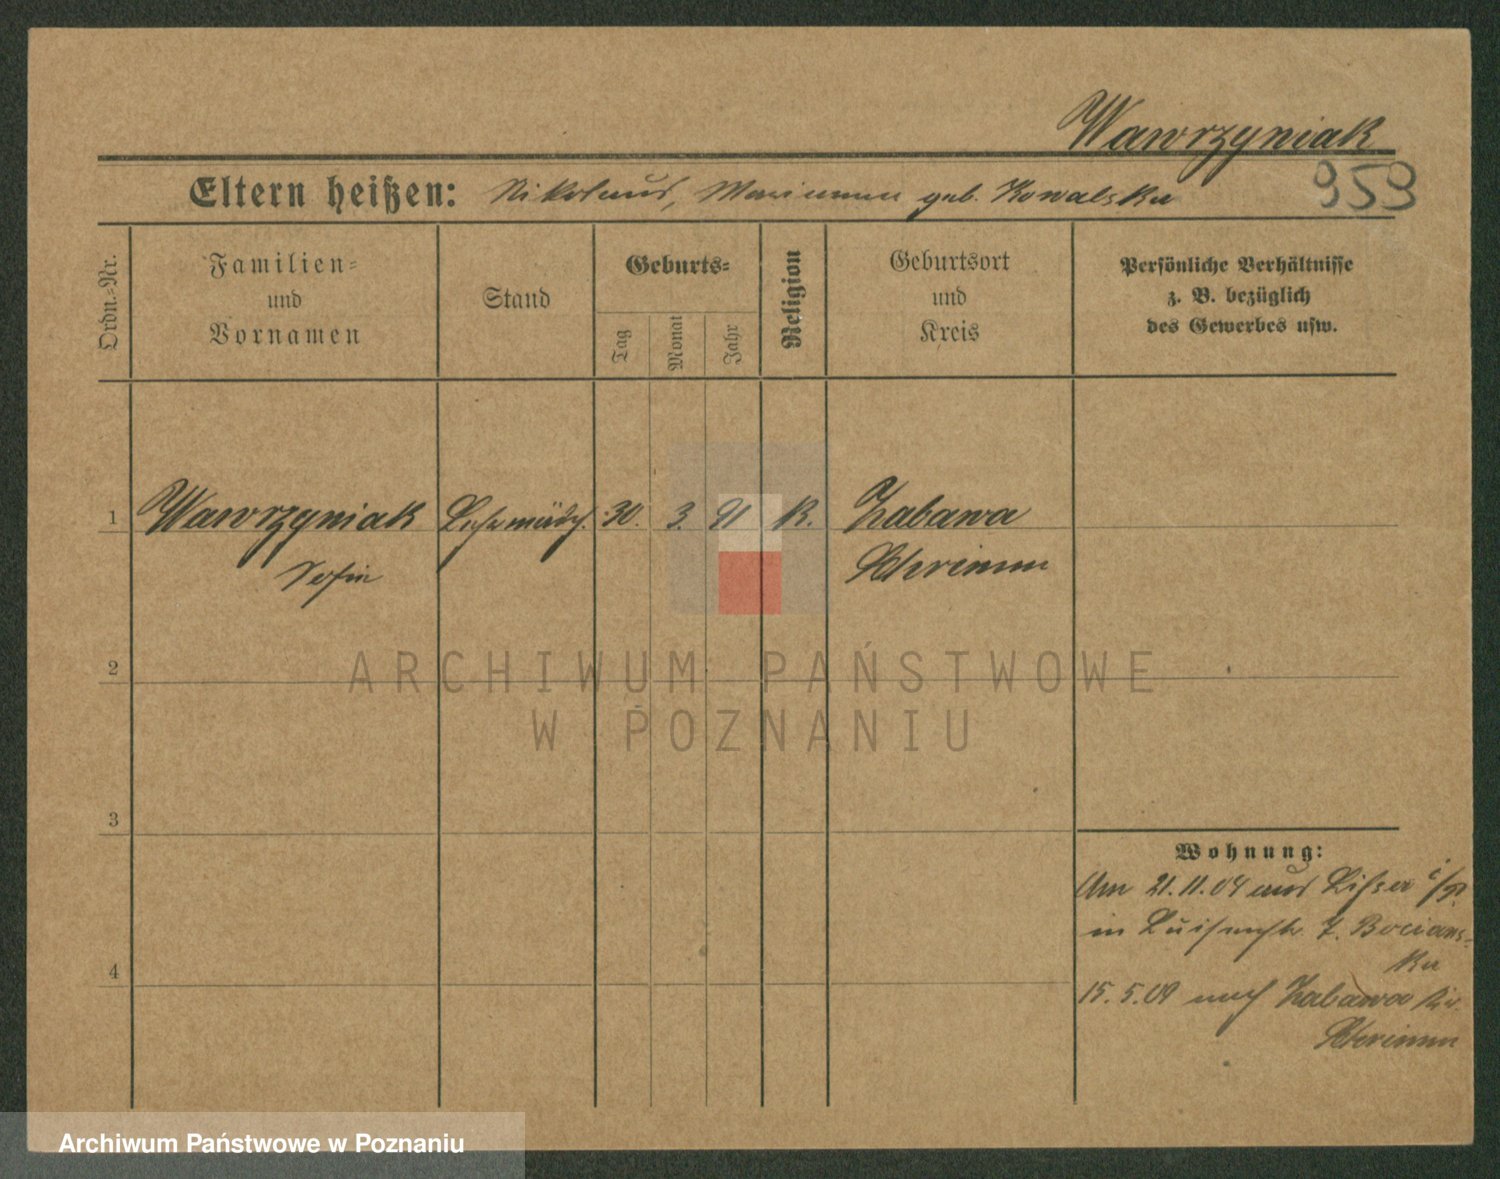 Wawrzyniak
959
Eltern heißen: Nikolaus, Marianna geb. Kowalska
Ordn.-Nr.
Familien-
und
Vornamen
Stand
Geburts-
Tag
Monat
Jahr
Religion
Geburtsort
und
Kreis
Persönliche Verhältnisse
z. B. bezüglich
des Gewerbes usw.
1 Wawrzyniak Lehrmädch. 30. 3. 91 K. Zabawa
Sofie Schrimm
2
3
4
Wohnung:
Am 21.11.04 aus Lissa i/P.
in Luisenstr. 7. Bocians-
ka
15.5.09 nach Zabawa Kr.
Schrimm
ARCHIWUM PAŃSTWOWE
W POZNANIU
Archiwum Państwowe w Poznaniu